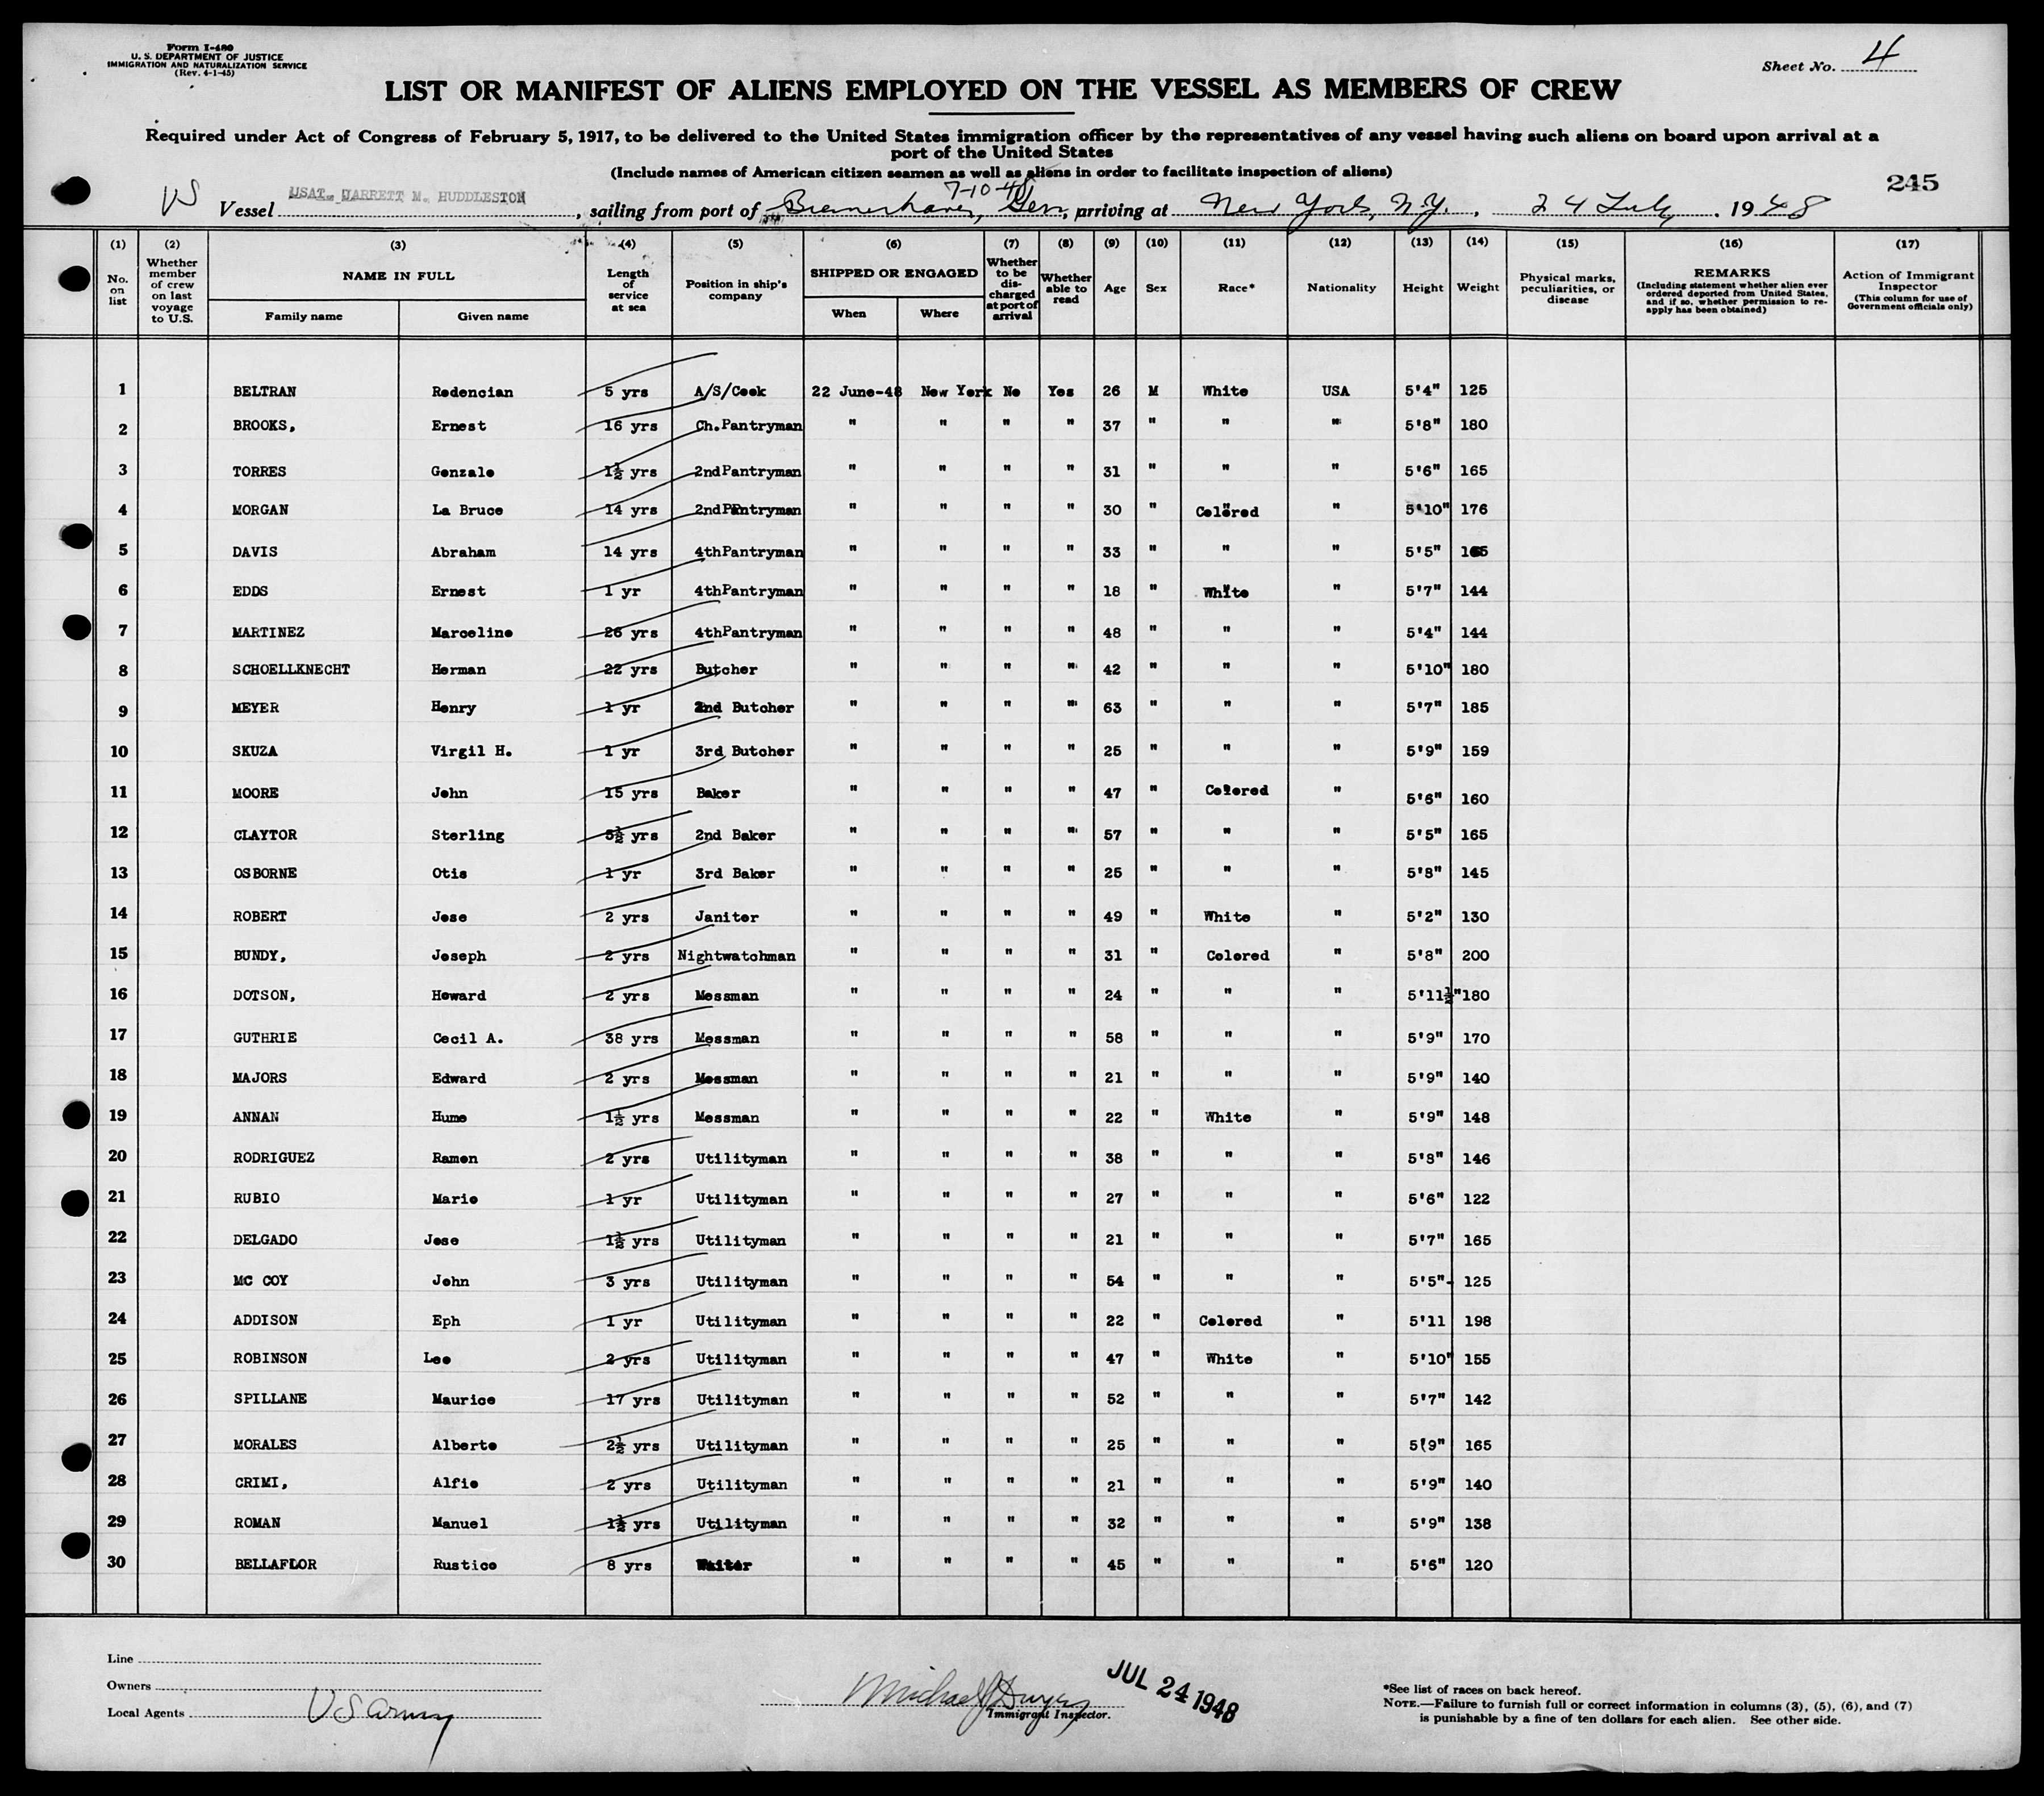 Form I-480
U. S. DEPARTMENT OF JUSTICE
IMMIGRATION AND NATURALIZATION SERVICE
(Rev. 4-1-45)
Sheet No. 4
LIST OR MANIFEST OF ALIENS EMPLOYED ON THE VESSEL AS MEMBERS OF CREW
Required under Act of Congress of February 5, 1917, to be delivered to the United States immigration officer by the representatives of any vessel having such aliens on board upon arrival at a
port of the United States
(Include names of American citizen seamen as well as aliens in order to facilitate inspection of aliens)
245
7-10-48
US Vessel USAT. JARRETT M. HUDDLESTON, sailing from port of Bremerhaven, Ger., arriving at New York, N.Y., 24 July, 1948
(1) (2) (3) (4) (5) (6) (7) (8) (9) (10) (11) (12) (13) (14) (15) (16) (17)
No. on list Whether member of crew on last voyage to U.S. NAME IN FULL Family name Given name Length of service at sea Position in ship's company SHIPPED OR ENGAGED When Where Whether to be discharged at port of arrival Whether able to read Age Sex Race* Nationality Height Weight Physical marks, peculiarities, or disease REMARKS (Including statement whether alien ever ordered deported from United States, and if so, whether permission to reapply has been obtained) Action of Immigrant Inspector (This column for use of Government officials only)
1 BELTRAN Redencian 5 yrs A/S/Cook 22 June-48 New York No Yes 26 M White USA 5'4" 125
2 BROOKS, Ernest 16 yrs Ch.Pantryman " " " " 37 " " " 5'8" 180
3 TORRES Gonzalo 1½ yrs 2ndPantryman " " " " 31 " " " 5'6" 165
4 MORGAN La Bruce 14 yrs 2ndPantryman " " " " 30 " Colored " 5'10" 176
5 DAVIS Abraham 14 yrs 4thPantryman " " " " 33 " " " 5'5" 165
6 EDDS Ernest 1 yr 4thPantryman " " " " 18 " White " 5'7" 144
7 MARTINEZ Marceline 26 yrs 4thPantryman " " " " 48 " " " 5'4" 144
8 SCHOELLKNECHT Herman 22 yrs Butcher " " " " 42 " " " 5'10" 180
9 MEYER Henry 1 yr 2nd Butcher " " " " 63 " " " 5'7" 185
10 SKUZA Virgil H. 1 yr 3rd Butcher " " " " 25 " " " 5'9" 159
11 MOORE John 15 yrs Baker " " " " 47 " Colored " 5'6" 160
12 CLAYTOR Sterling 5½ yrs 2nd Baker " " " " 57 " " " 5'5" 165
13 OSBORNE Otis 1 yr 3rd Baker " " " " 25 " " " 5'8" 145
14 ROBERT Jose 2 yrs Janitor " " " " 49 " White " 5'2" 130
15 BUNDY, Joseph 2 yrs Nightwatchman " " " " 31 " Colored " 5'8" 200
16 DOTSON, Howard 2 yrs Messman " " " " 24 " " " 5'11½" 180
17 GUTHRIE Cecil A. 38 yrs Messman " " " " 58 " " " 5'9" 170
18 MAJORS Edward 2 yrs Messman " " " " 21 " " " 5'9" 140
19 ANNAN Hume 1½ yrs Messman " " " " 22 " White " 5'9" 148
20 RODRIGUEZ Ramon 2 yrs Utilityman " " " " 38 " " " 5'8" 146
21 RUBIO Mario 1 yr Utilityman " " " " 27 " " " 5'6" 122
22 DELGADO Jose 1½ yrs Utilityman " " " " 21 " " " 5'7" 165
23 MC COY John 3 yrs Utilityman " " " " 54 " " " 5'5"- 125
24 ADDISON Eph 1 yr Utilityman " " " " 22 " Colored " 5'11 198
25 ROBINSON Lee 2 yrs Utilityman " " " " 47 " White " 5'10" 155
26 SPILLANE Maurice 17 yrs Utilityman " " " " 52 " " " 5'7" 142
27 MORALES Alberto 2½ yrs Utilityman " " " " 25 " " " 5'9" 165
28 CRIMI, Alfio 2 yrs Utilityman " " " " 21 " " " 5'9" 140
29 ROMAN Manuel 1½ yrs Utilityman " " " " 32 " " " 5'9" 138
30 BELLAFLOR Rustico 8 yrs Waiter " " " " 45 " " " 5'6" 120
Line
Owners
Local Agents US Army
Michael J Dwyer
Immigrant Inspector.
JUL 24 1948
*See list of races on back hereof.
NOTE.—Failure to furnish full or correct information in columns (3), (5), (6), and (7)
is punishable by a fine of ten dollars for each alien. See other side.